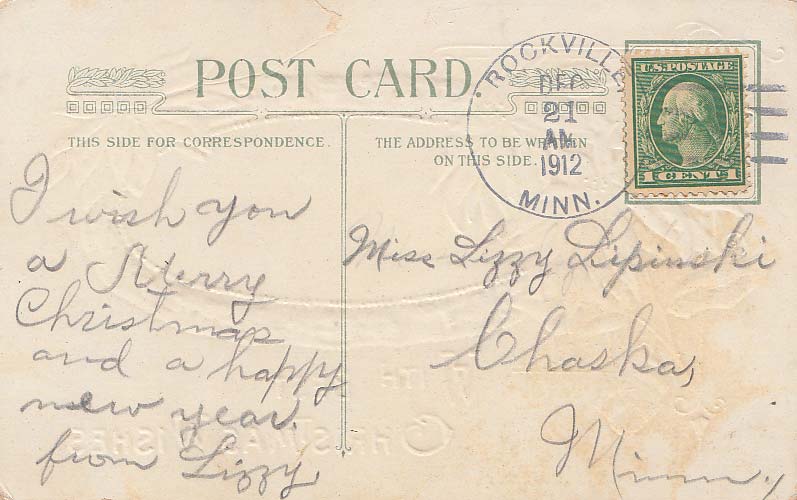 POST CARD.
THIS SIDE FOR CORRESPONDENCE.
THE ADDRESS TO BE WRITTEN
ON THIS SIDE.
ROCKVILLE
DEC
21
AM
1912
MINN.
U.S. POSTAGE
1 CENT 1
I wish you
a Merry
Christmas
and a happy
new year.
from Lizzy
Miss Lizzy Lipinski
Chaska,
Minn.
CHRISTMAS WISHES